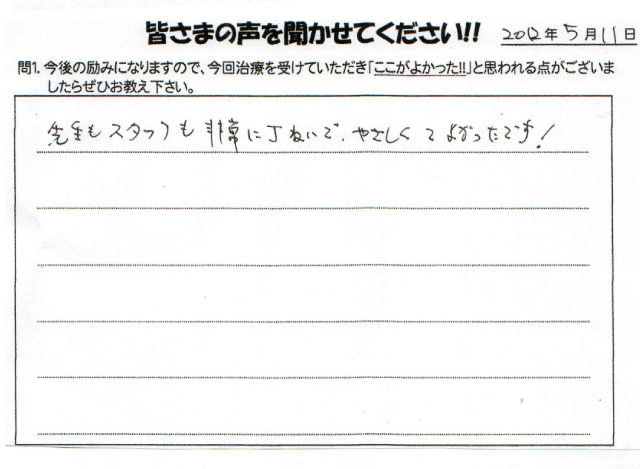 皆さまの声を聞かせてください!! 2012年5月11日
問1. 今後の励みになりますので、今回治療を受けていただき「ここがよかった!!」と思われる点がございま
したらぜひお教え下さい。
先生もスタッフも非常に丁ねいで、やさしくてよかったです!